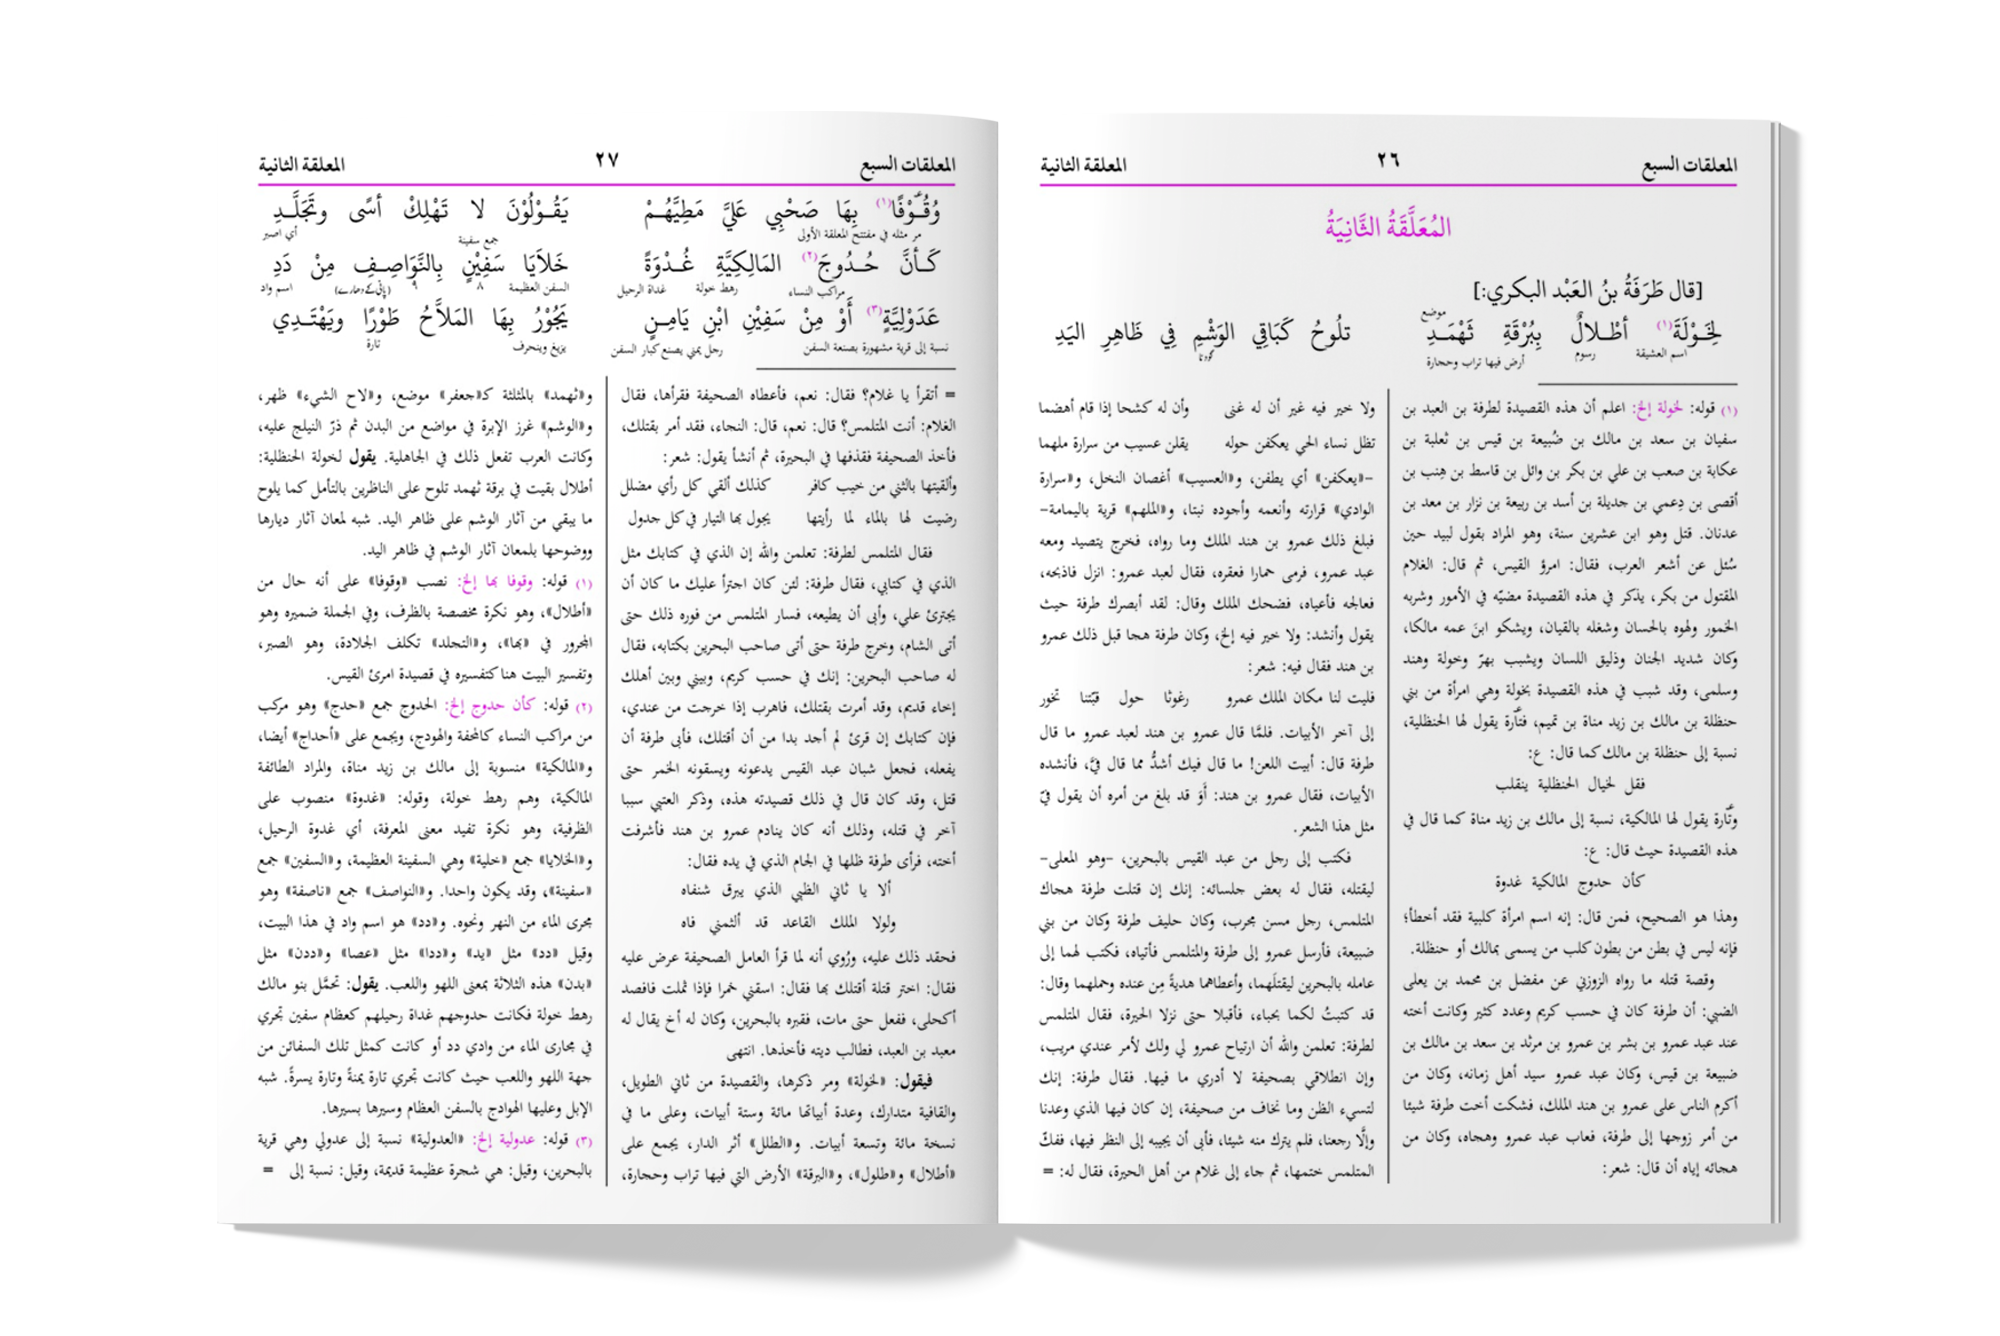 المعلقات السبع ٢٦ المعلقة الثانية
المُعَلَّقَةُ الثَّانِيَةُ
[قال طَرَفَةُ بنُ العَبْد البكري:]
لِخَوْلَةَ(١) أطْـلالٌ بِبُرْقَةِ ثَهْمَـدِ تلُوحُ كَبَاقِي الوَشْمِ فِي ظَاهِرِ اليَدِ
موضع
اسم العشيقة رسوم أرض فيها تراب وحجارة
(١) قوله: لخولة إلخ: اعلم أن هذه القصيدة لطرفة بن العبد بن
سفيان بن سعد بن مالك بن ضُبيعة بن قيس بن ثعلبة بن
عكابة بن صعب بن علي بن بكر بن وائل بن قاسط بن هِنب بن
أقصى بن دِعمي بن جديلة بن أسد بن ربيعة بن نزار بن معد بن
عدنان. قتل وهو ابن عشرين سنة، وهو المراد بقول لبيد حين
سُئل عن أشعر العرب، فقال: امرؤ القيس، ثم قال: الغلام
المقتول من بكر، يذكر في هذه القصيدة مضيّه في الأمور وشربه
الخمور ولهوه بالحسان وشغله بالقيان، ويشكو ابنَ عمه مالكا،
وكان شديد الجنان وذليق اللسان ويشبب بهرّ وخولة وهند
وسلمى، وقد شبب في هذه القصيدة بخولة وهي امرأة من بني
حنظلة بن مالك بن زيد مناة بن تميم، فتارة يقول لها الحنظلية،
نسبة إلى حنظلة بن مالك كما قال: ع:
فقل لخيال الحنظلية ينقلب
وتارة يقول لها المالكية، نسبة إلى مالك بن زيد مناة كما قال في
هذه القصيدة حيث قال: ع:
كأن حدوج المالكية غدوة
وهذا هو الصحيح، فمن قال: إنه اسم امرأة كلبية فقد أخطأ؛
فإنه ليس في بطن من بطون كلب من يسمى بمالك أو حنظلة.
وقصة قتله ما رواه الزوزني عن مفضل بن محمد بن يعلى
الضبي: أن طرفة كان في حسب كريم وعدد كثير وكانت أخته
عند عبد عمرو بن بشر بن عمرو بن مرثد بن سعد بن مالك بن
ضبيعة بن قيس، وكان عبد عمرو سيد أهل زمانه، وكان من
أكرم الناس على عمرو بن هند الملك، فشكت أخت طرفة شيئا
من أمر زوجها إلى طرفة، فعاب عبد عمرو وهجاه، وكان من
هجائه إياه أن قال: شعر:
ولا خير فيه غير أن له غنى وأن له كشحا إذا قام أهضما
تظل نساء الحي يعكفن حوله يقلن عسيب من سرارة ملهما
-«يعكفن» أي يطفن، و«العسيب» أغصان النخل، و«سرارة
الوادي» قرارته وأنعمه وأجوده نبتا، و«الملهم» قرية باليمامة-
فبلغ ذلك عمرو بن هند الملك وما رواه، فخرج يتصيد ومعه
عبد عمرو، فرمى حمارا فعقره، فقال لعبد عمرو: انزل فاذبحه،
فعالجه فأعياه، فضحك الملك وقال: لقد أبصرك طرفة حيث
يقول وأنشد: ولا خير فيه إلخ، وكان طرفة هجا قبل ذلك عمرو
بن هند فقال فيه: شعر:
فليت لنا مكان الملك عمرو رغوثا حول قبّتنا تخور
إلى آخر الأبيات. فلمَّا قال عمرو بن هند لعبد عمرو ما قال
طرفة قال: أبيت اللعن! ما قال فيك أشدُّ مما قال فيَّ، فأنشده
الأبيات، فقال عمرو بن هند: أوَ قد بلغ من أمره أن يقول فيّ
مثل هذا الشعر.
فكتب إلى رجل من عبد القيس بالبحرين، -وهو المعلى-
ليقتله، فقال له بعض جلسائه: إنك إن قتلت طرفة هجاك
المتلمس، رجل مسن مجرب، وكان حليف طرفة وكان من بني
ضبيعة، فأرسل عمرو إلى طرفة والمتلمس فأتياه، فكتب لهما إلى
عامله بالبحرين ليقتلَهما، وأعطاهما هديةً مِن عنده وحملهما وقال:
قد كتبتُ لكما بحباء، فأقبلا حتى نزلا الحيرة، فقال المتلمس
لطرفة: تعلمن والله أن ارتياح عمرو لي ولك لأمر عندي مريب،
وإن انطلاقي بصحيفة لا أدري ما فيها. فقال طرفة: إنك
لتسيء الظن وما نخاف من صحيفة، إن كان فيها الذي وعدنا
وإلَّا رجعنا، فلم يترك منه شيئا، فأبى أن يجيبه إلى النظر فيها، ففكّ
المتلمس ختمها، ثم جاء إلى غلام من أهل الحيرة، فقال له: =
المعلقات السبع ٢٧ المعلقة الثانية
وُقُـوْفًا(١) بِهَا صَحْبِي عَلَيَّ مَطِيَّهُـمْ يَقُـوْلُوْنَ لا تَهْلِكْ أسًى وتَجَلَّـدِ
مر مثله في مفتتح المعلقة الأولى جمع سفينة أي اصبر
كَـأنَّ حُـدُوجَ(٢) المَالِكِيَّةِ غُـدْوَةً خَلاَيَا سَفِيْنٍ بِالنَّوَاصِـفِ مِنْ دَدِ
مراكب النساء رهط خولة غداة الرحيل السفن العظيمة (پانی کے دھارے) اسم واد
عَدَوْلِيَّةٍ(٣) أَوْ مِنْ سَفِيْنِ ابْنِ يَامِـنٍ يَجُوْرُ بِهَا المَلاَّحُ طَوْرًا ويَهْتَـدِي
نسبة إلى قرية مشهورة بصنعة السفن رجل يمني يصنع كبار السفن يزيغ وينحرف تارة
= أتقرأ يا غلام؟ فقال: نعم، فأعطاه الصحيفة فقرأها، فقال
الغلام: أنت المتلمس؟ قال: نعم، قال: النجاء، فقد أمر بقتلك،
فأخذ الصحيفة فقذفها في البحيرة، ثم أنشأ يقول: شعر:
وألقيتها بالثني من خيب كافر كذلك ألقي كل رأي مضلل
رضيت لها بالماء لما رأيتها يجول بها التيار في كل جدول
فقال المتلمس لطرفة: تعلمن والله إن الذي في كتابك مثل
الذي في كتابي، فقال طرفة: لئن كان اجترأ عليك ما كان أن
يجترئ علي، وأبى أن يطيعه، فسار المتلمس من فوره ذلك حتى
أتى الشام، وخرج طرفة حتى أتى صاحب البحرين بكتابه، فقال
له صاحب البحرين: إنك في حسب كريم، وبيني وبين أهلك
إخاء قديم، وقد أمرت بقتلك، فاهرب إذا خرجت من عندي،
فإن كتابك إن قرئ لم أجد بدا من أن أقتلك، فأبى طرفة أن
يفعله، فجعل شبان عبد القيس يدعونه ويسقونه الخمر حتى
قتل، وقد كان قال في ذلك قصيدته هذه، وذكر العتبي سببا
آخر في قتله، وذلك أنه كان ينادم عمرو بن هند فأشرفت
أخته، فرأى طرفة ظلها في الجام الذي في يده فقال:
ألا يا ثاني الظبي الذي يبرق شنفاه
ولولا الملك القاعد قد ألثمني فاه
فحقد ذلك عليه، ورُوي أنه لما قرأ العامل الصحيفة عرض عليه
فقال: اختر قتلة أقتلك بها فقال: اسقني خمرا فإذا ثملت فافصد
أكحلى، ففعل حتى مات، فقبره بالبحرين، وكان له أخ يقال له
معبد بن العبد، فطالب ديته فأخذها. انتهى
فيقول: «لخولة» ومر ذكرها، والقصيدة من ثاني الطويل،
والقافية متدارك، وعدة أبياتها مائة وستة أبيات، وعلى ما في
نسخة مائة وتسعة أبيات. و«الطلل» أثر الدار، يجمع على
«أطلال» و«طلول»، و«البرقة» الأرض التي فيها تراب وحجارة،
و«ثهمد» بالمثلثة كـ«جعفر» موضع، و«لاح الشيء» ظهر،
و«الوشم» غرز الإبرة في مواضع من البدن ثم ذرّ النيلج عليه،
وكانت العرب تفعل ذلك في الجاهلية. يقول لخولة الحنظلية:
أطلال بقيت في برقة ثهمد تلوح على الناظرين بالتأمل كما يلوح
ما يبقي من آثار الوشم على ظاهر اليد. شبه لمعان آثار ديارها
ووضوحها بلمعان آثار الوشم في ظاهر اليد.
(١) قوله: وقوفا بها إلخ: نصب «وقوفا» على أنه حال من
«أطلال»، وهو نكرة مخصصة بالظرف، وفي الجملة ضميره وهو
المجرور في «بها»، و«التجلد» تكلف الجلادة، وهو الصبر،
وتفسير البيت هنا كتفسيره في قصيدة امرئ القيس.
(٢) قوله: كأن حدوج إلخ: الحدوج جمع «حدج» وهو مركب
من مراكب النساء كالمحفة والهودج، ويجمع على «أحداج» أيضا،
و«المالكية» منسوبة إلى مالك بن زيد مناة، والمراد الطائفة
المالكية، وهم رهط خولة، وقوله: «غدوة» منصوب على
الظرفية، وهو نكرة تفيد معنى المعرفة، أي غدوة الرحيل،
و«الخلايا» جمع «خلية» وهي السفينة العظيمة، و«السفين» جمع
«سفينة»، وقد يكون واحدا. و«النواصف» جمع «ناصفة» وهو
مجرى الماء من النهر ونحوه. و«دد» هو اسم واد في هذا البيت،
وقيل «دد» مثل «يد» و«ددا» مثل «عصا» و«ددن» مثل
«بدن» هذه الثلاثة بمعنى اللهو واللعب. يقول: تحمَّل بنو مالك
رهط خولة فكانت حدوجهم غداة رحيلهم كعظام سفين تجري
في مجارى الماء من وادي دد أو كانت كمثل تلك السفائن من
جهة اللهو واللعب حيث كانت تجري تارة يمنةً وتارة يسرةً. شبه
الإبل وعليها الهوادج بالسفن العظام وسيرها بسيرها.
(٣) قوله: عدولية إلخ: «العدولية» نسبة إلى عدولي وهي قرية
بالبحرين، وقيل: هي شجرة عظيمة قديمة، وقيل: نسبة إلى =